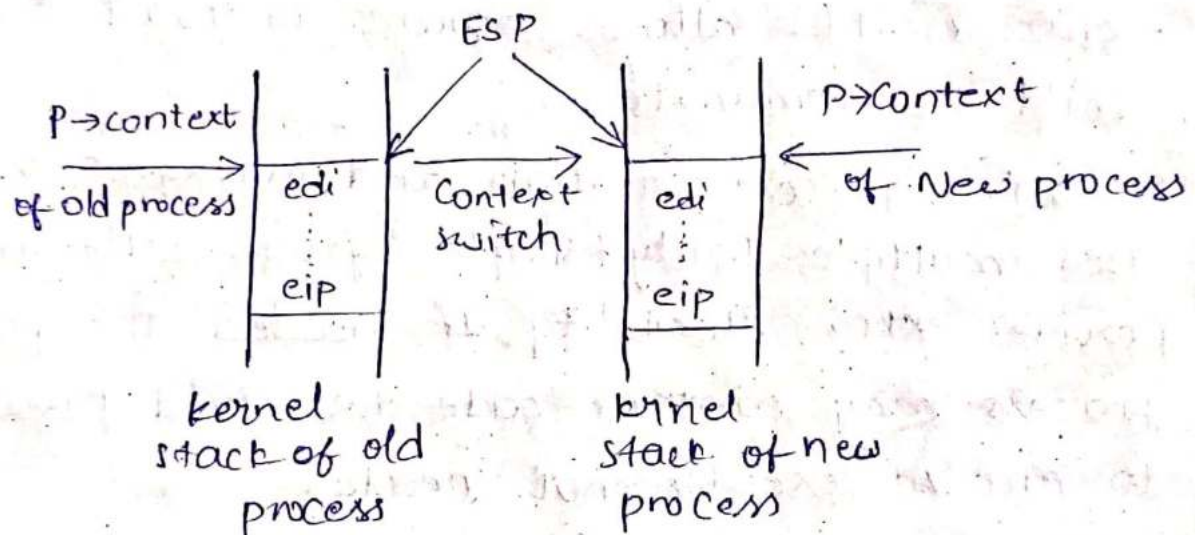 ESP
P→context
of old process
edi
eip
Context
switch
edi
eip
P→Context
of New process
kernel
stack of old
process
krnel
stack of new
process